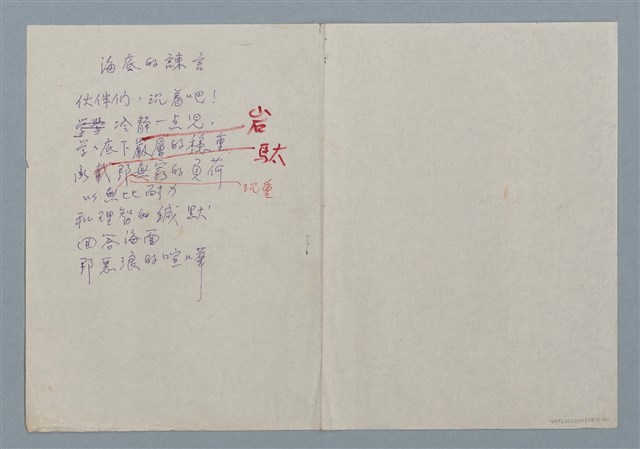 海底的諫言
伙伴们，沉着吧！
冷静一点児，
学学底下巖層的穩重 岩
承載那無窮的負荷 馱
沉重
以無比耐力
和理智的緘默
回答海面
那惡浪的喧嘩